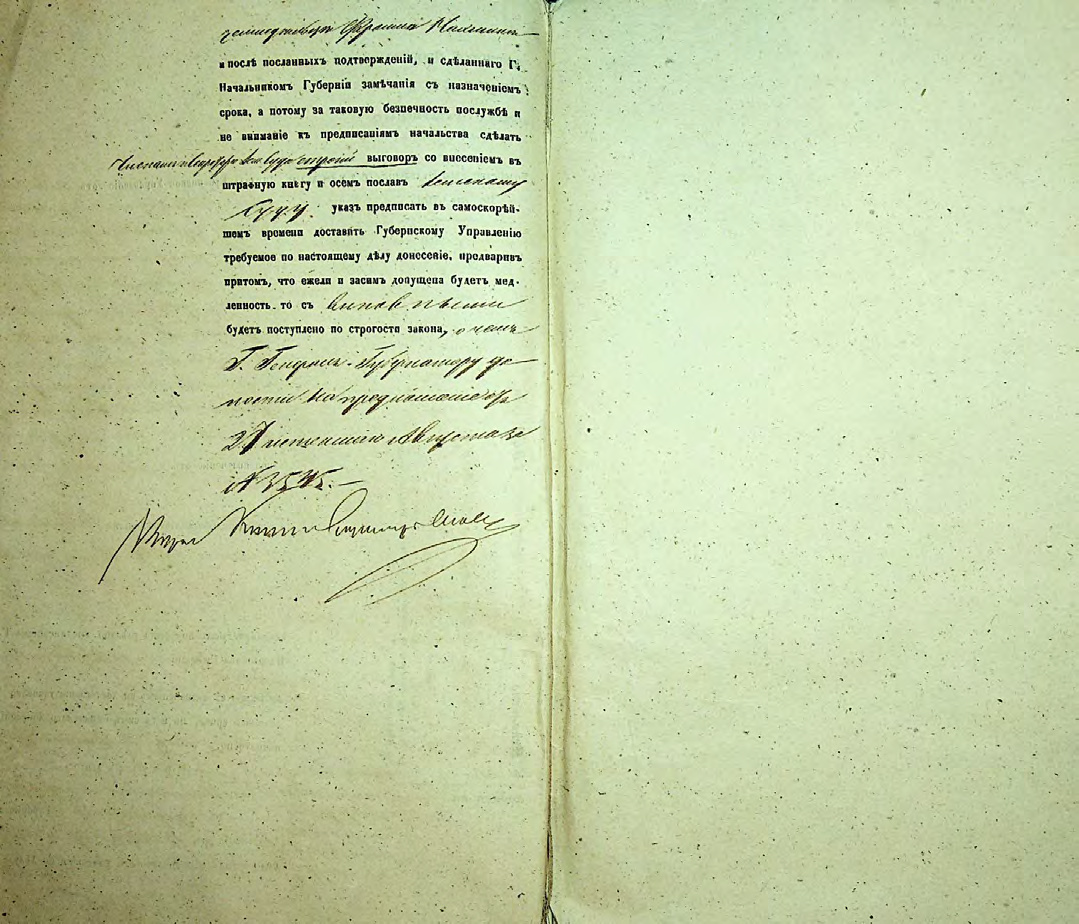 и послѣ посланныхъ подтвержденій, и сдѣланнаго Г.
Начальникомъ Губерніи замѣчанія съ назначеніемъ
срока, а потому за таковую безпечность послужбѣ и
не вниманіе къ предписаніямъ начальства сдѣлать
строгій выговоръ со внесеніемъ въ
штрафную книгу и осемъ пославъ Земскому
Суду указъ предписать въ самоскорѣй-
шемъ времени доставить Губернскому Управленію
требуемое по настоящему дѣлу донесеніе, предваривъ
притомъ, что ежели и засимъ допущена будетъ мед-
ленность то съ виновными
будетъ поступлено по строгости закона, о чемъ
Г. Генералъ-Губернатору до
нести на предложеніе отъ
27 истекшаго Августа за